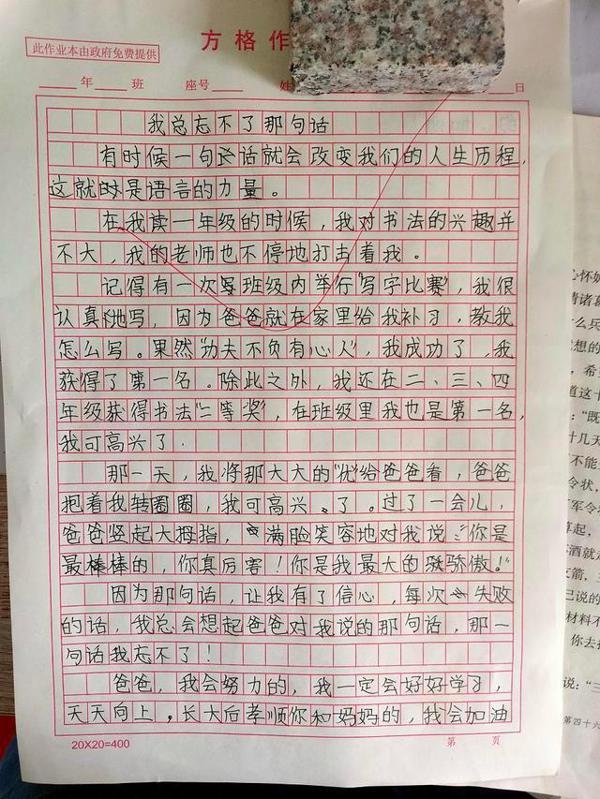 此作业本由政府免费提供
方格作
年 班 座号 姓 日
我总忘不了那句话
有时候一句话就会改变我们的人生历程,
这就是语言的力量。
在我读一年级的时候,我对书法的兴趣并
不大,我的老师也不停地打击着我。
记得有一次班级内举行“写字比赛”,我很
认真地写,因为爸爸就在家里给我补习,教我
怎么写。果然“功夫不负有心人”,我成功了,我
获得了第一名。除此之外,我还在二、三、四
年级获得书法“二等奖”,在班级里我也是第一名,
我可高兴了.
那一天,我将那大大的“优”给爸爸看,爸爸
抱着我转圈圈,我可高兴了。过了一会儿,
爸爸竖起大拇指,满脸笑容地对我说:“你是
最棒棒的,你真厉害!你是我最大的骄傲!”
因为那句话,让我有了信心,每次失败
的话,我总会想起爸爸对我说的那句话,那一
句话我忘不了!
爸爸,我会努力的,我一定会好好学习,
天天向上,长大后孝顺你和妈妈的,我会加油
20X20=400
第 页
心怀
什么兵
我想的
希
道这十
:“既
计几天
不能
令状,
军令
算起,
酒就
支箭,
已说的
材料不
你去
说:“三
第四十六